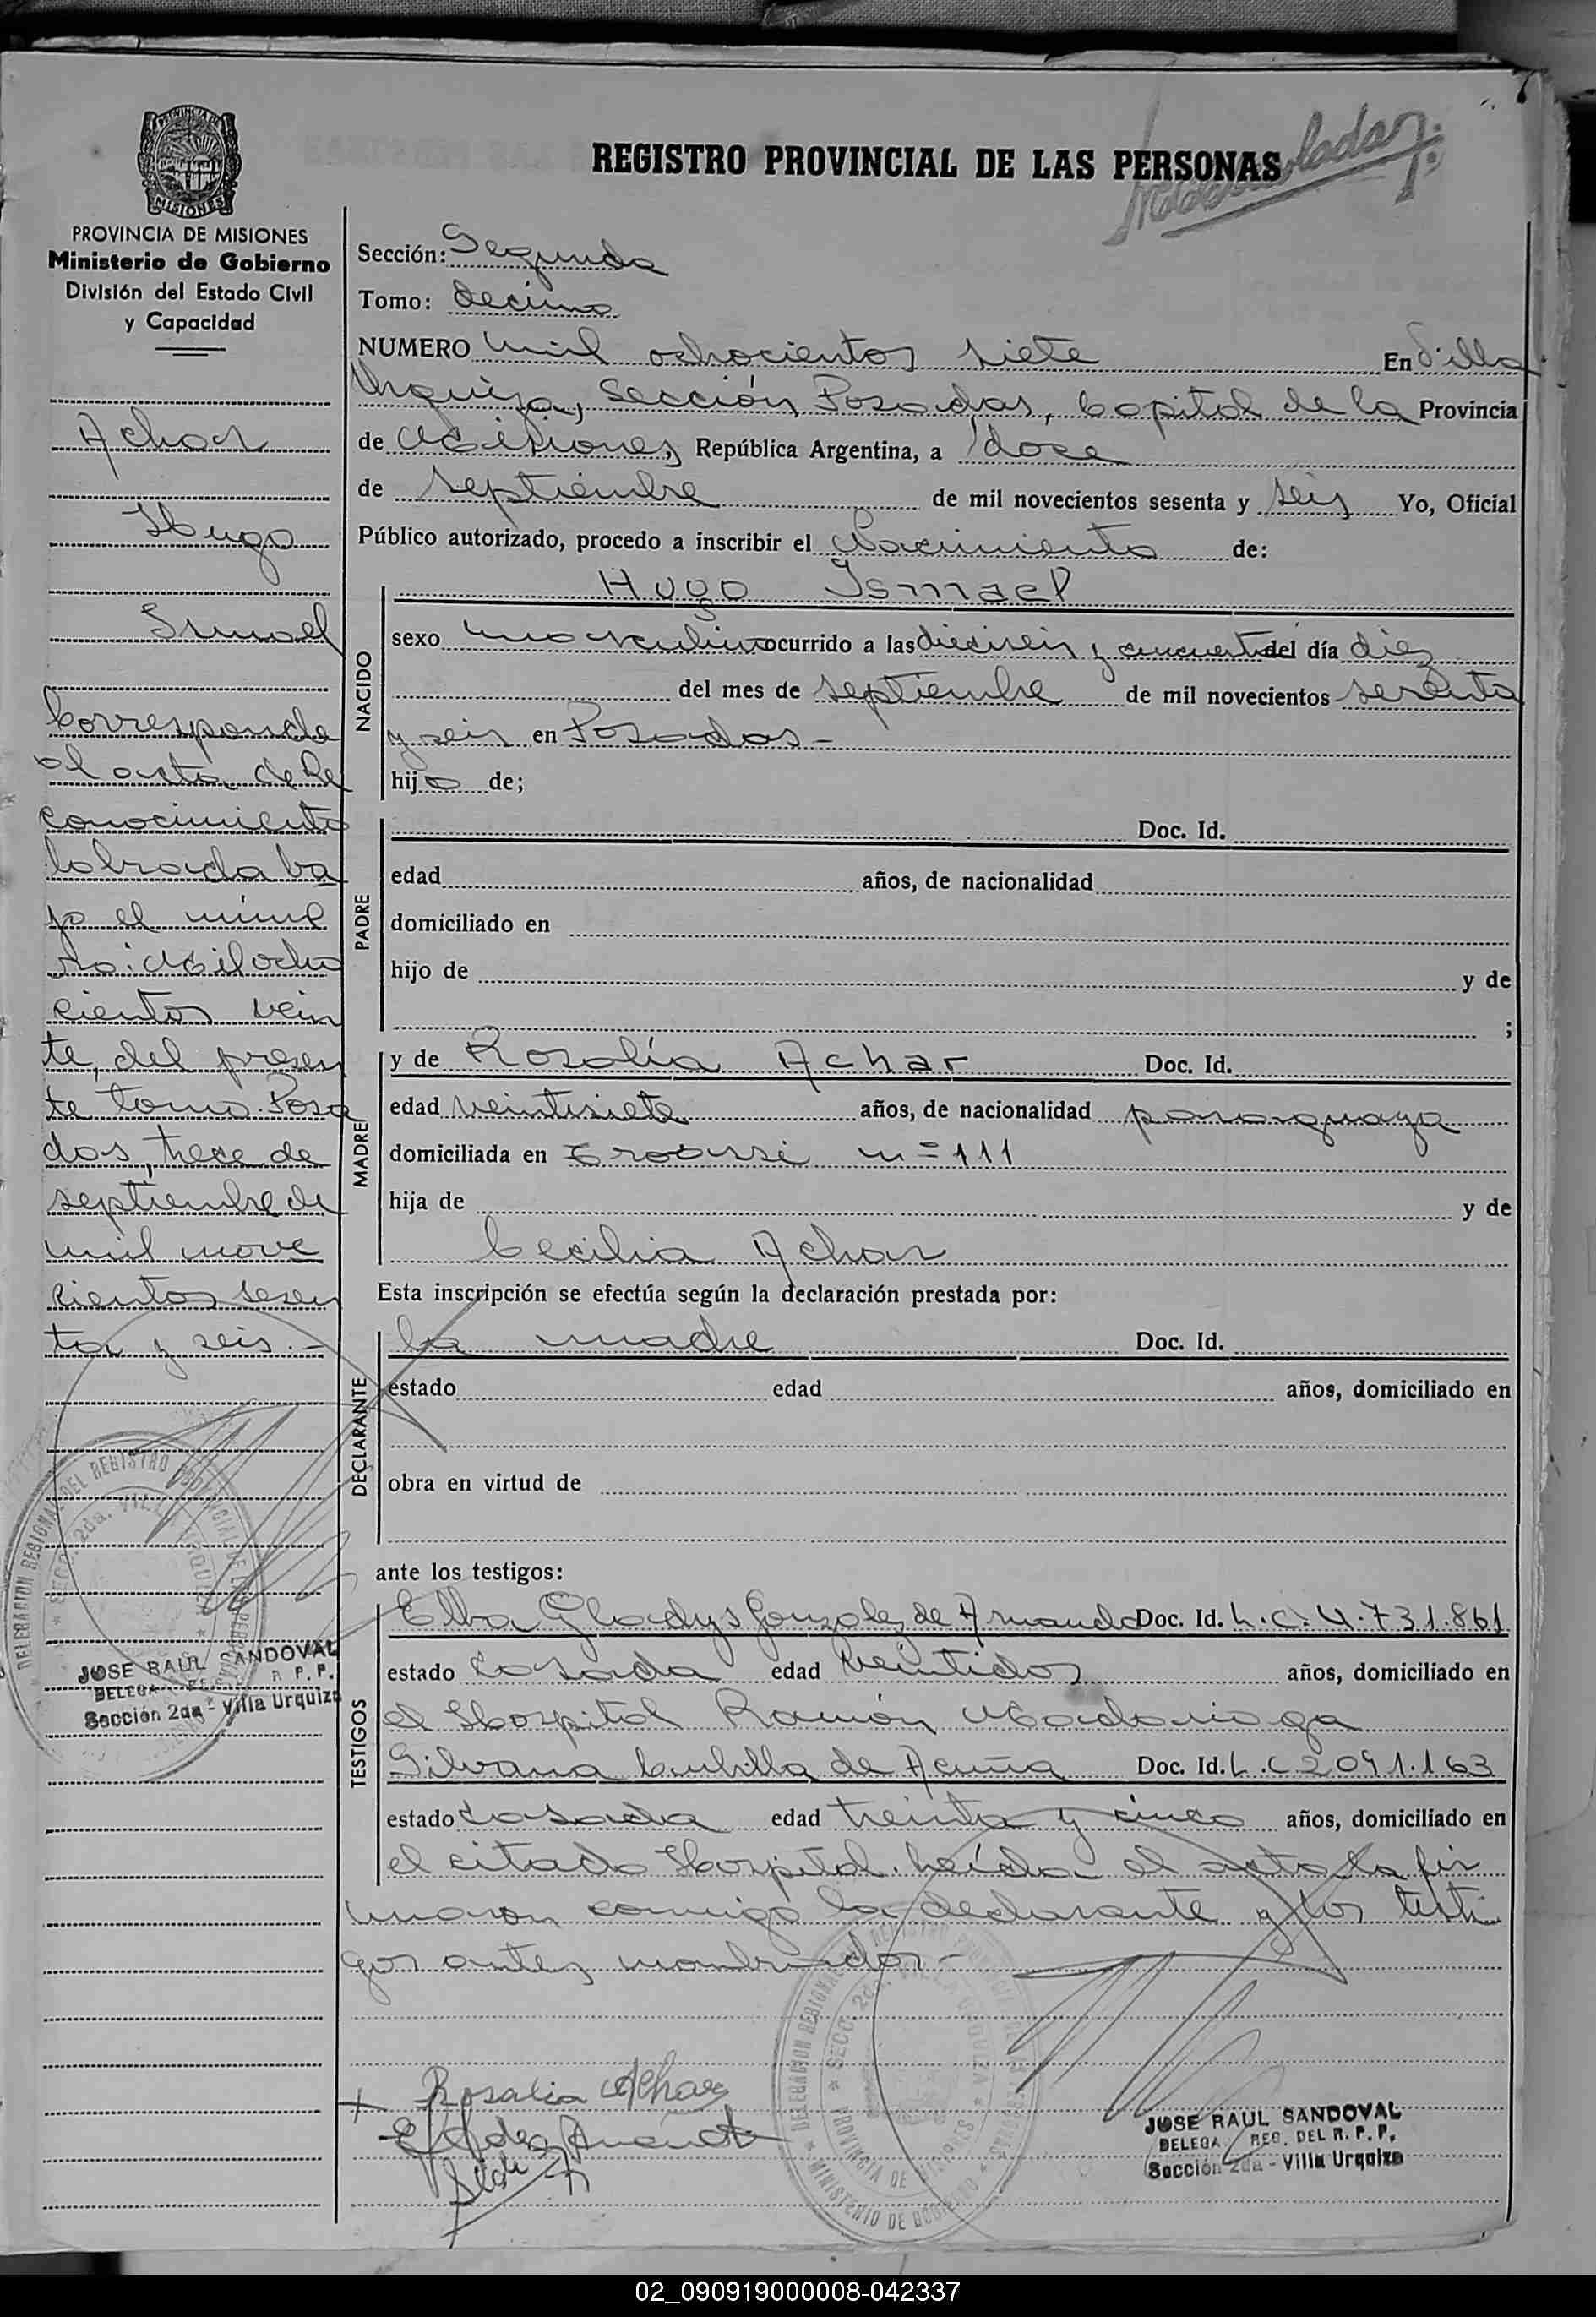 REGISTRO PROVINCIAL DE LAS PERSONAS
PROVINCIA DE
MISIONES
PROVINCIA DE MISIONES
Ministerio de Gobierno
División del Estado Civil
y Capacidad
Achar
Hugo
Ismael
Corresponde
al acta de Re
conocimiento
labrada ba
jo el núme
ro: Mil ocho
cientos vein
te, del presen
te tomo. Posa
das, trece de
septiembre de
mil nove
cientos sesen
ta y seis.-
JOSE RAUL SANDOVAL
DELEGA R. P. P.
Sección 2da - Villa Urquiza
Sección: Segunda
Tomo: decimo
NUMERO mil ochocientos siete En Villa
Urquiza, Sección Posadas, Capital de la Provincia
de Misiones, República Argentina, a doce
de septiembre de mil novecientos sesenta y seis Yo, Oficial
Público autorizado, procedo a inscribir el Nacimiento de:
Hugo Ismael
NACIDO
sexo masculino ocurrido a las dieciseis y cincuenta del día diez
del mes de septiembre de mil novecientos sesenta
y seis en Posadas -
hijo de;
PADRE
Doc. Id.
edad años, de nacionalidad
domiciliado en
hijo de y de
;
MADRE
y de Rosalía Achar Doc. Id.
edad veintisiete años, de nacionalidad paraguaya
domiciliada en n=111
hija de y de
Cecilia Achar
Esta inscripción se efectúa según la declaración prestada por:
DECLARANTE
la madre Doc. Id.
estado edad años, domiciliado en
obra en virtud de
ante los testigos:
TESTIGOS
Elba Gladys Gonzalez de Armando Doc. Id. L.C. 4.731.861
estado casada edad veintidos años, domiciliado en
el Hospital Ramón Madariaga
Silvana Cubilla de Acuña Doc. Id. L.C 2091.163
estado casada edad treinta y cinco años, domiciliado en
el citado Hospital. Leída el acta la fir
maron conmigo la declarante y los testi
gos antes nombrados -
Rosalia Achar
DELEGACION REGIONAL DEL REGISTRO PROVINCIAL DE LAS PERSONAS
SECC. 2da. VILLA URQUIZA
PROVINCIA DE MISIONES
MINISTERIO DE GOBIERNO
JOSE RAUL SANDOVAL
DELEGA. REG. DEL R. P. P.
Sección 2da - Villa Urquiza
02_090919000008-042337